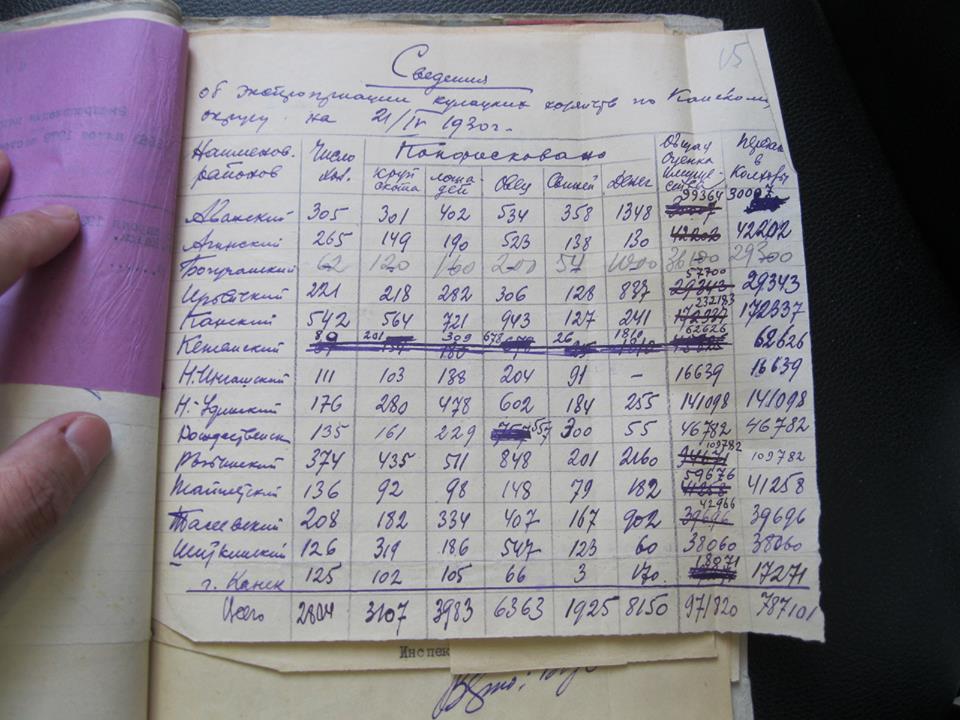 15
Сведения
об экспроприации кулацких хозяйств по Канскому
округу на 21/IV 1930г.
Наименов. районов Число хоз. Конфисковано Общая оценка имущества Передано в Колхозы
круп скота лоша дей Овец Свиней Денег
Абанский 305 301 402 534 358 1348 99364 30007
Агинский 265 149 190 523 138 130 42202 42202
Богучанский 62 120 160 200 54 36100 29300
Ирбейский 221 218 282 306 128 887 57700 29343 29343
Канский 542 564 721 943 127 241 232183 172337 172337
Кежемский 89 201 309 678 26 1810 62626 62626
Н.Ингашский 111 103 188 204 91 – 16639 16639
Н-Удинский 176 280 478 602 184 255 141098 141098
Рождественск 135 161 229 557 300 55 46782 46782
Рыбинский 374 435 511 848 201 2160 109782 109782
Тайшетский 136 92 98 148 79 182 59676 41258 41258
Тасеевский 208 182 334 407 167 902 42966 39696 39696
Шиткинский 126 319 186 547 123 60 38060 38060
г. Канск 125 102 105 66 3 170 18971 17271
Всего 2804 3107 3983 6363 1925 8150 971820 787101
Инспек